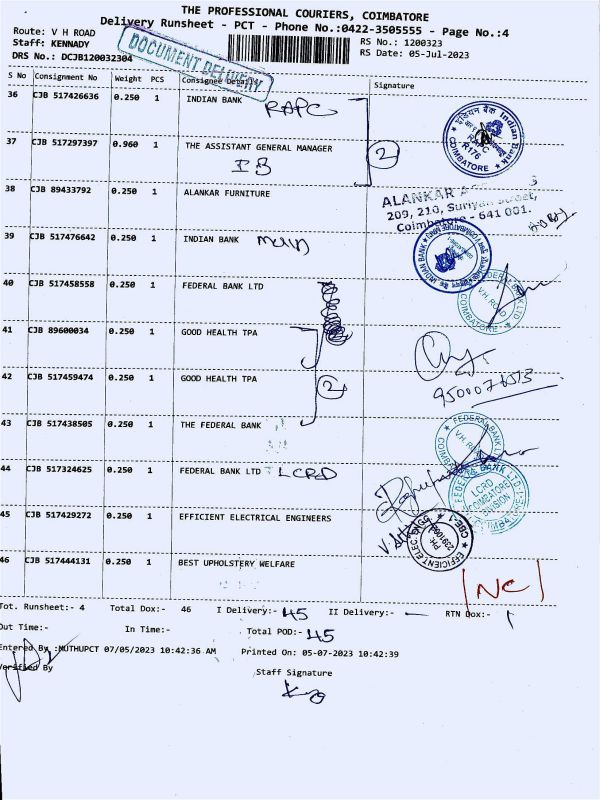 THE PROFESSIONAL COURIERS, COIMBATORE
Delivery Runsheet - PCT - Phone No.:0422-3505555 - Page No.:4
Route: V H ROAD
Staff: KENNADY
DRS No.: DCJB120032304
RS No.: 1200323
RS Date: 05-Jul-2023
DOCUMENT DELIVERY
S No Consignment No Weight PCS Consignee Details Signature
36 CJB 517426636 0.250 1 INDIAN BANK RAPC
इंडियन बैंक Indian Bank COIMBATORE RAPC R176
37 CJB 517297397 0.960 1 THE ASSISTANT GENERAL MANAGER 2
IB
38 CJB 89433792 0.250 1 ALANKAR FURNITURE
ALANKAR
209, 210, Street,
Coimbatore - 641 001.
39 CJB 517476642 0.250 1 INDIAN BANK main
INDIAN BANK
40 CJB 517458558 0.250 1 FEDERAL BANK LTD
FEDERAL BANK LTD V.H. ROAD COIMBATORE
41 CJB 89600034 0.250 1 GOOD HEALTH TPA
42 CJB 517459474 0.250 1 GOOD HEALTH TPA 2
43 CJB 517438505 0.250 1 THE FEDERAL BANK
FEDERAL BANK V.H. ROAD
44 CJB 517324625 0.250 1 FEDERAL BANK LTD LCRD
FEDERAL BANK LTD. LCRD COIMBATORE DIVISION
45 CJB 517429272 0.250 1 EFFICIENT ELECTRICAL ENGINEERS
EFFICIENT CBE-1
46 CJB 517444131 0.250 1 BEST UPHOLSTERY WELFARE
NC
Tot. Runsheet:- 4 Total Dox:- 46 I Delivery:- 45 II Delivery:- — RTN Dox:- 1
Out Time:- In Time:- Total POD:- 45
Entered By :MUTHUPCT 07/05/2023 10:42:36 AM Printed On: 05-07-2023 10:42:39
Verified By
Staff Signature